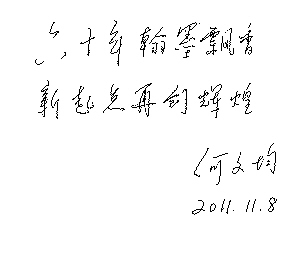 六十年翰墨飘香
新起点再创辉煌
何文均
2011.11.8